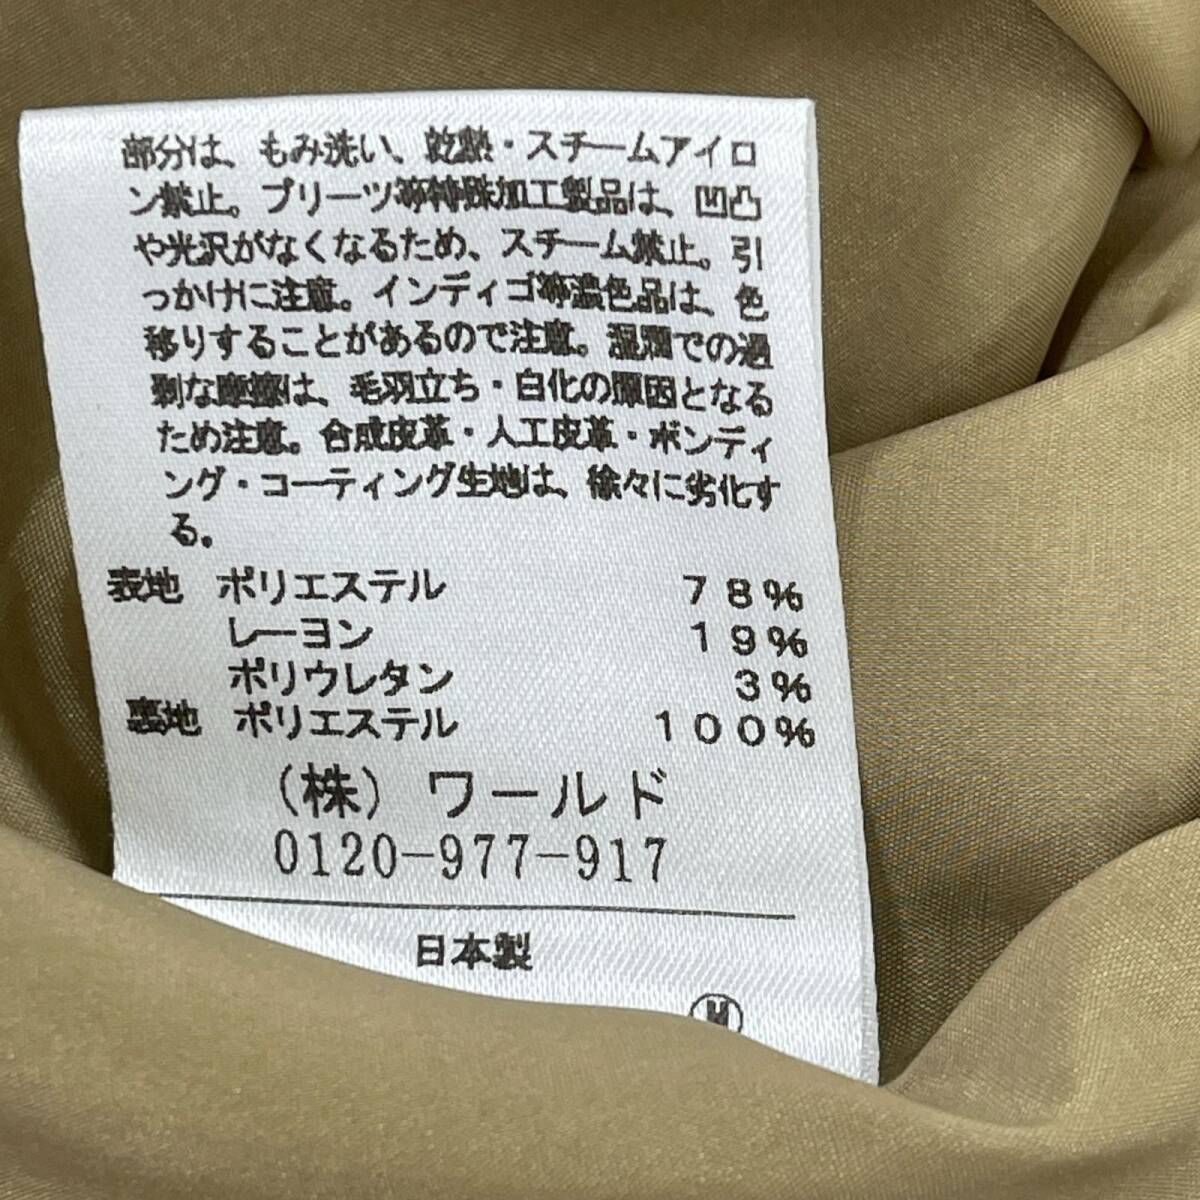 部分は、もみ洗い、乾熱・スチームアイロ
ン禁止。プリーツ等特殊加工製品は、凹凸
や光沢がなくなるため、スチーム禁止。引
っかけに注意。インディゴ等濃色品は、色
移りすることがあるので注意。湿潤での過
剰な摩擦は、毛羽立ち・白化の原因となる
ため注意。合成皮革・人工皮革・ボンディ
ング・コーティング生地は、徐々に劣化す
る。
表地 ポリエステル 78%
レーヨン 19%
ポリウレタン 3%
裏地 ポリエステル 100%
(株) ワールド
0120-977-917
日本製